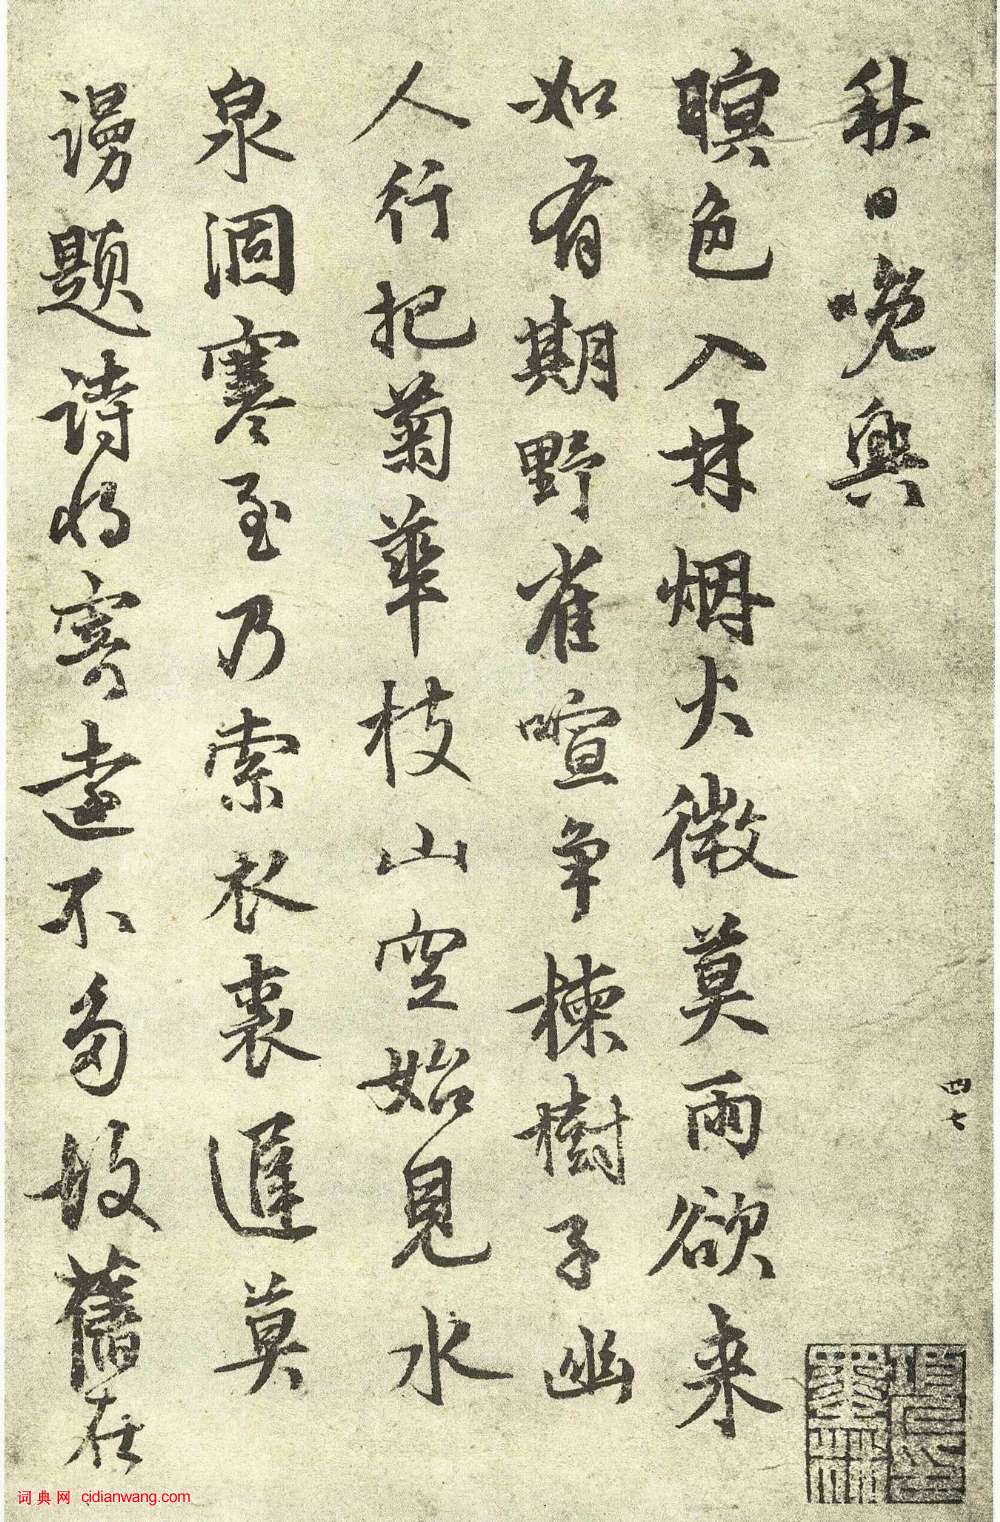 秋日晚興
暝色入林烟火微莫雨欲来
如有期野雀喧争楝樹子幽
人行把菊華枝山空始見水
泉涸寒至乃索衣裘遲莫
謾題詩將寄遠不多故舊在
四七
词典网 cidianwang.com